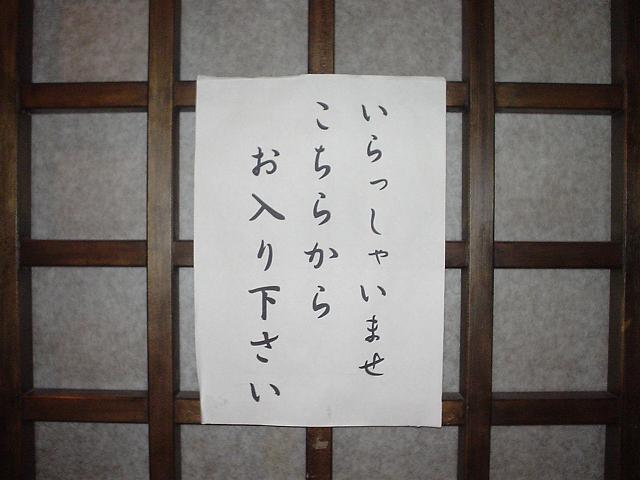 いらっしゃいませ
こちらから
お入り下さい